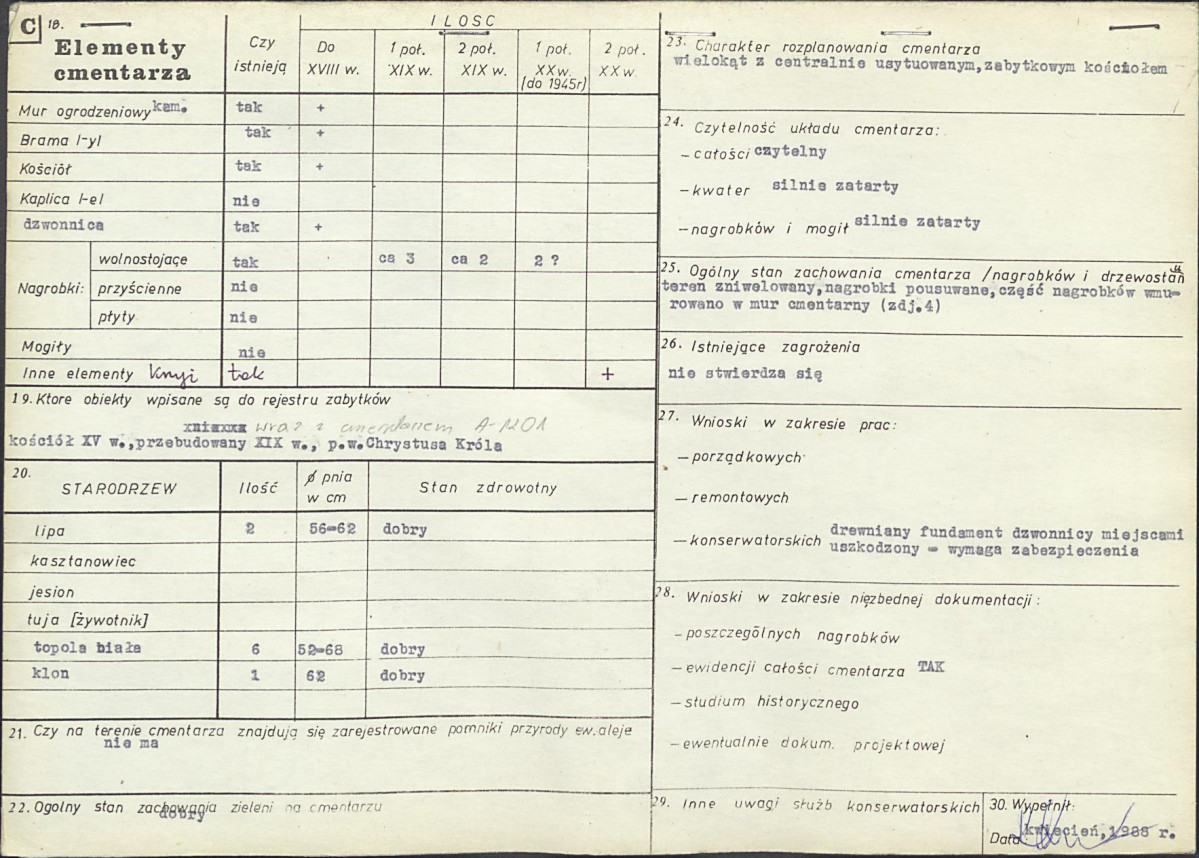 C 18.
Elementy
cmentarza
Czy
istnieją
ILOŚĆ
Do
XVIII w.
1 poł.
XIX w.
2 poł.
XIX w.
1 poł.
XX w.
(do 1945r)
2 poł.
XX w.
Mur ogrodzeniowy kam. tak +
Brama /-y/ tak +
Kościół tak +
Kaplica /-e/ nie
dzwonnica tak +
Nagrobki:
wolnostojące tak ca 3 ca 2 2 ?
przyścienne nie
płyty nie
Mogiły nie
Inne elementy tak +
19. Ktore obiekty wpisane są do rejestru zabytków
wraz z cmentarzem A-1201
kościół XV w.,przebudowany XIX w., p.w.Chrystusa Króla
20.
STARODRZEW
Ilość
ø pnia
w cm
Stan zdrowotny
lipa 2 56-62 dobry
kasztanowiec
jesion
tuja [żywotnik]
topola biała 6 52-68 dobry
klon 1 62 dobry
21. Czy na terenie cmentarza znajdują się zarejestrowane pomniki przyrody ew.aleje
nie ma
22. Ogolny stan zachowania zieleni na cmentarzu
dobry
23. Charakter rozplanowania cmentarza
wielokąt z centralnie usytuowanym,zabytkowym kościołem
24. Czytelność układu cmentarza:
– całości czytelny
– kwater silnie zatarty
– nagrobków i mogił silnie zatarty
25. Ogólny stan zachowania cmentarza /nagrobków i drzewostanu
teren zniwelowany,nagrobki pousuwane,część nagrobków wmu-
rowano w mur cmentarny (zdj.4)
26. Istniejące zagrożenia
nie stwierdza się
27. Wnioski w zakresie prac:
– porządkowych
– remontowych
– konserwatorskich drewniany fundament dzwonnicy miejscami
uszkodzony - wymaga zabezpieczenia
28. Wnioski w zakresie nięzbednej dokumentacji:
– poszczególnych nagrobków
– ewidencji całości cmentarza TAK
– studium historycznego
– ewentualnie dokum. projektowej
29. Inne uwagi służb konserwatorskich
30. Wypełnił:
Data kwiecień,1988 r.